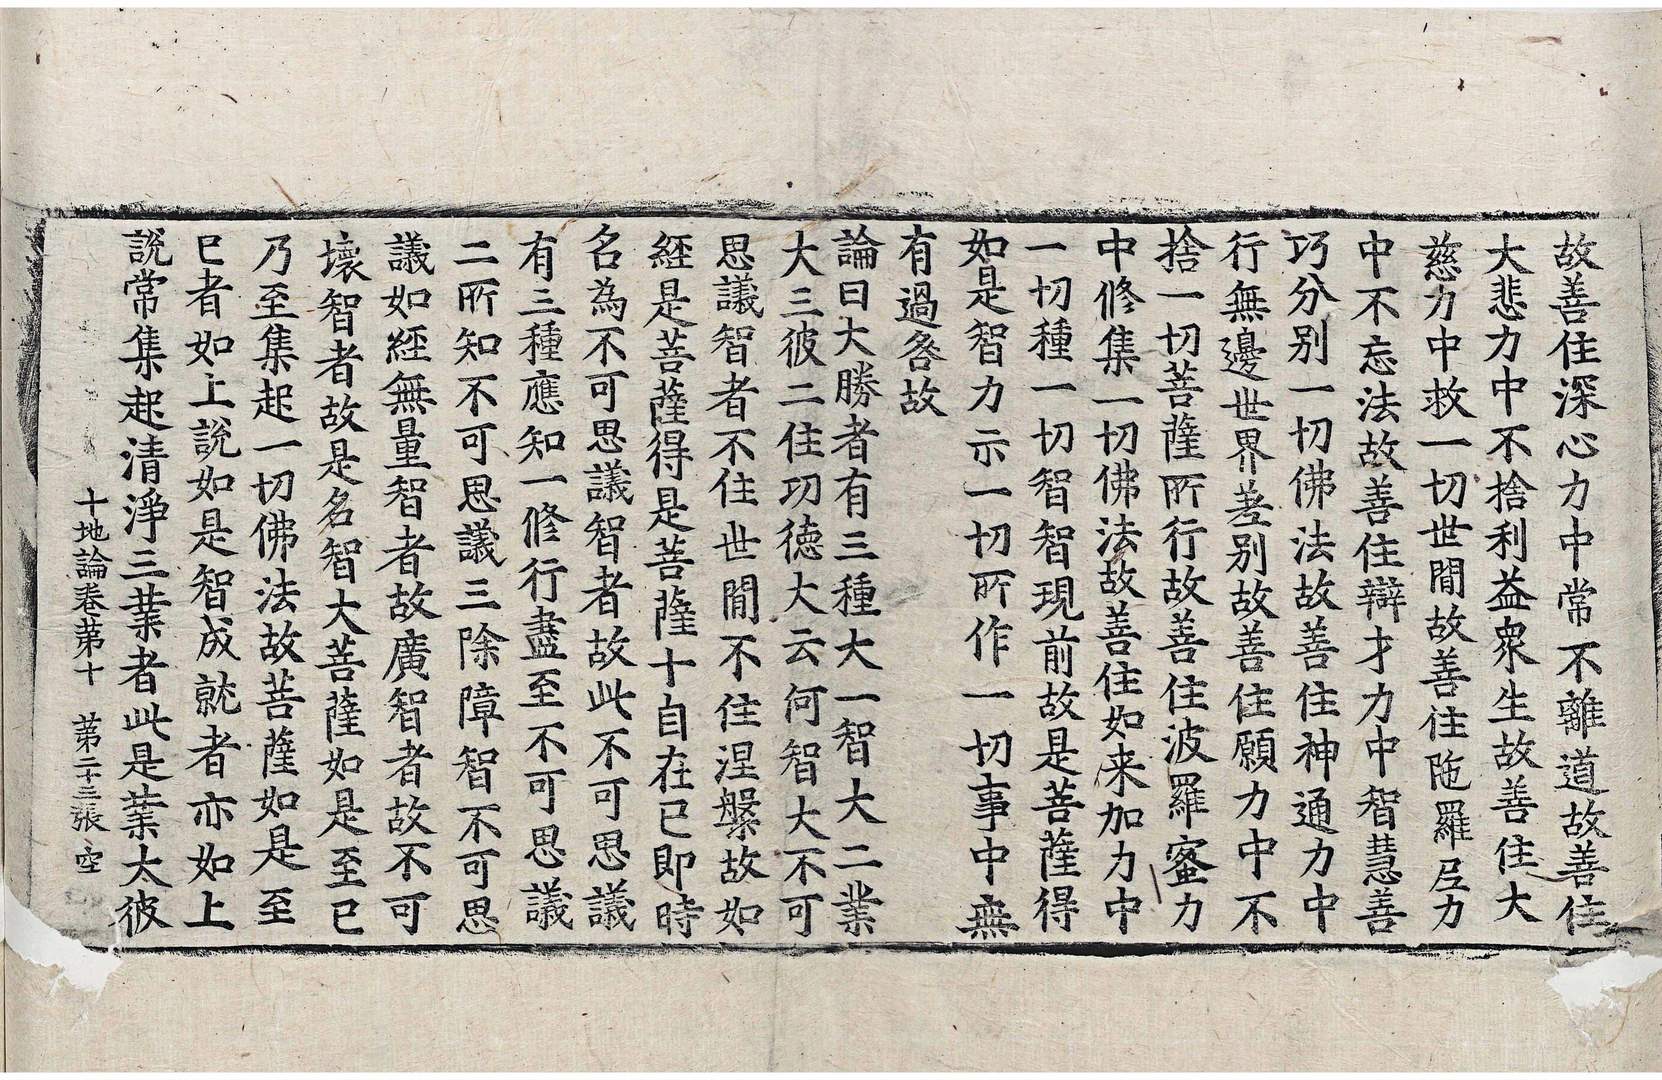 故善住深心力中常不離道故善住
大悲力中不捨利益衆生故善住大
慈力中救一切世間故善住陁羅尼力
中不忘法故善住辯才力中智慧善
巧分别一切佛法故善住神通力中
行無邊世界差别故善住願力中不
捨一切菩薩所行故善住波羅蜜力
中修集一切佛法故善住如来加力中
一切種一切智智現前故是菩薩得
如是智力示一切所作一切事中無
有過咎故
論曰大勝者有三種大一智大二業
大三彼二住功徳大云何智大不可
思議智者不住世間不住涅槃故如
經是菩薩得是菩薩十自在已即時
名為不可思議智者故此不可思議
有三種應知一修行盡至不可思議
二所知不可思議三除障智不可思
議如經無量智者故廣智者故不可
壞智者故是名智大菩薩如是至已
乃至集起一切佛法故菩薩如是至
已者如上說如是智成就者亦如上
說常集起清淨三業者此是業大彼
十地論卷第十 第二十三張 空